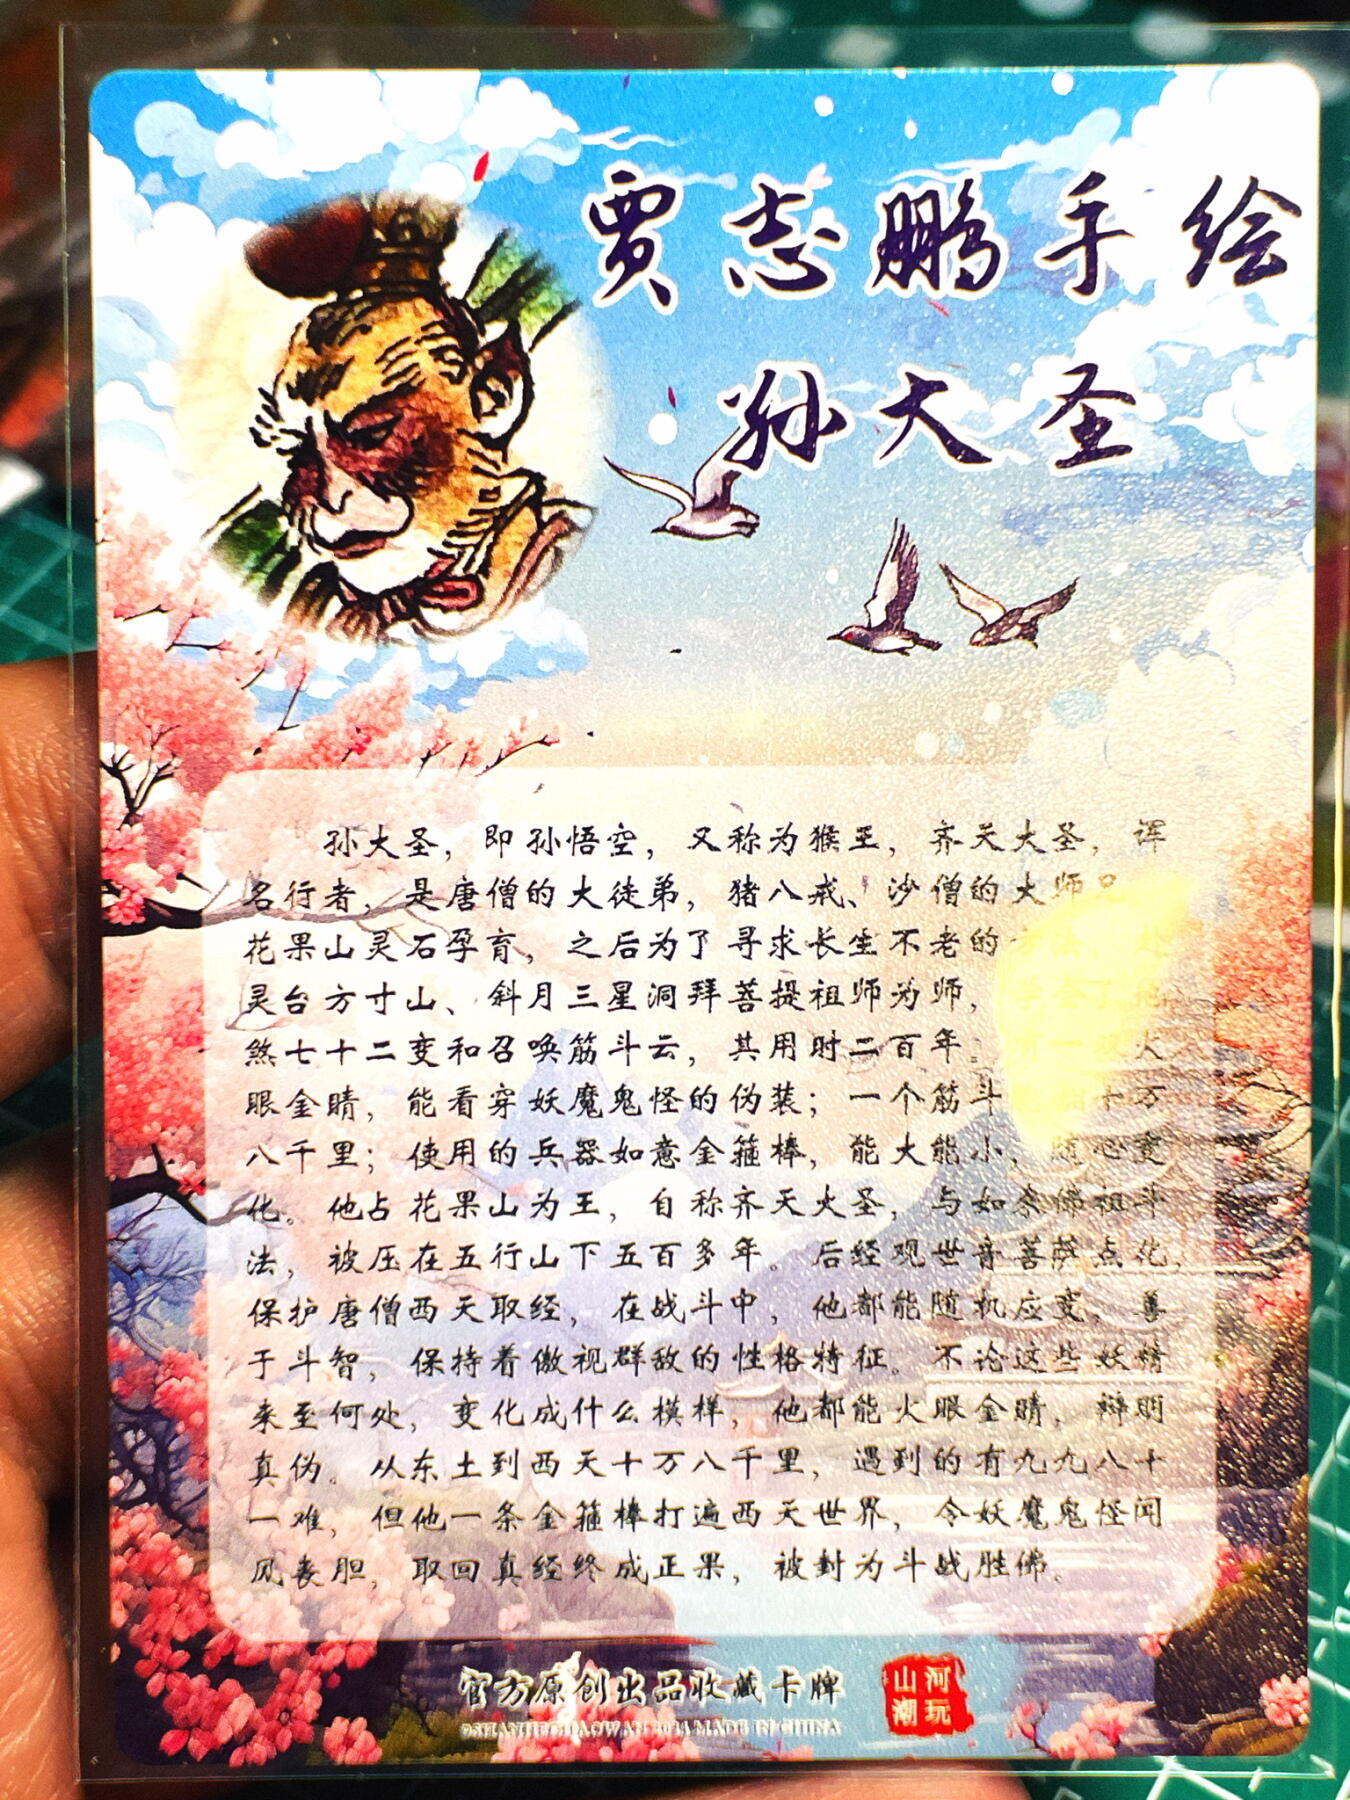 贾志鹏手绘
孙大圣
孙大圣，即孙悟空，又称为猴王，齐天大圣，诨
名行者，是唐僧的大徒弟，猪八戒、沙僧的大师兄
花果山灵石孕育，之后为了寻求长生不老的
灵台方寸山、斜月三星洞拜菩提祖师为师，
煞七十二变和召唤筋斗云，其用时二百年。一双火
眼金睛，能看穿妖魔鬼怪的伪装；一个筋斗十万
八千里；使用的兵器如意金箍棒，能大能小，随心变
化。他占花果山为王，自称齐天大圣，与如来佛祖斗
法，被压在五行山下五百多年。后经观世音菩萨点化，
保护唐僧西天取经，在战斗中，他都能随机应变，善
于斗智，保持着傲视群敌的性格特征。不论这些妖精
来至何处，变化成什么模样，他都能火眼金睛，辩明
真伪。从东土到西天十万八千里，遇到的有九九八十
一难，但他一条金箍棒打遍西天世界，令妖魔鬼怪闻
风丧胆，取回真经终成正果，被封为斗战胜佛。
官方原创出品收藏卡牌
MADE IN CHINA
山河
潮玩